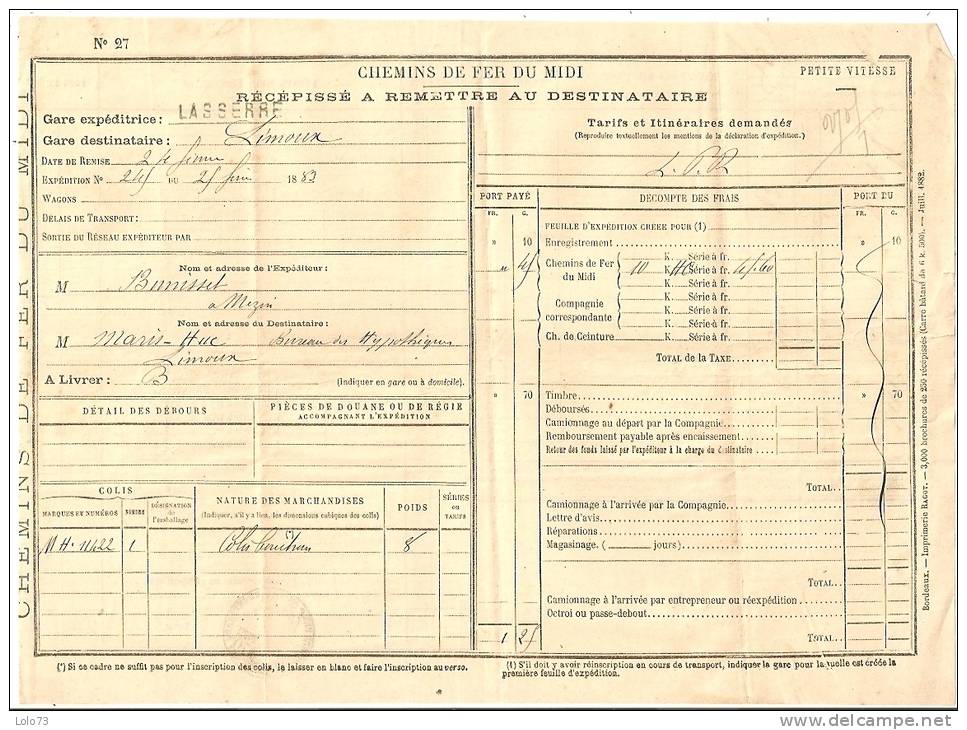 No 27
CHEMINS DE FER DU MIDI
PETITE VITESSE
RÉCÉPISSÉ A REMETTRE AU DESTINATAIRE
CHEMINS DE FER DU MIDI
Gare expéditrice: LASSERRE
Gare destinataire: Limoux
DATE DE REMISE
EXPÉDITION No 245 DU 25 1883
WAGONS
DÉLAIS DE TRANSPORT:
SORTIE DU RÉSEAU EXPÉDITEUR PAR
Nom et adresse de l'Expéditeur:
M
à Mezin
Nom et adresse du Destinataire:
M Maris-Huc Bureau des Hypothèques
Limoux
A Livrer: B (Indiquer en gare ou à domicile).
DÉTAIL DES DÉBOURS
PIÈCES DE DOUANE OU DE RÉGIE
ACCOMPAGNANT L'EXPÉDITION
COLIS
MARQUES ET NUMÉROS
NOMBRE
DÉSIGNATION de l'emballage
NATURE DES MARCHANDISES
(Indiquer, s'il y a lieu, les dimensions cubiques des colis)
(*)
POIDS
SÉRIES OU TARIFS
MH. 11422 1 8
(*) Si ce cadre ne suffit pas pour l'inscription des colis, le laisser en blanc et faire l'inscription au verso.
Tarifs et Itinéraires demandés
(Reproduire textuellement les mentions de la déclaration d'expédition.)
PORT PAYÉ
DÉCOMPTE DES FRAIS
PORT DU
FR. C.
FR. C.
FEUILLE D'EXPÉDITION CRÉÉE POUR (1)
» 10 Enregistrement » 10
K. Série à fr.
» 45 Chemins de Fer du Midi 10 K. Série à fr. 45.60
K. Série à fr.
Compagnie correspondante
K. Série à fr.
K. Série à fr.
K. Série à fr.
Ch. de Ceinture K. Série à fr.
TOTAL DE LA TAXE
» 70 Timbre » 70
Déboursés
Camionnage au départ par la Compagnie
Remboursement payable après encaissement
Retour des fonds laissé par l'expéditeur à la charge du destinataire
TOTAL
Camionnage à l'arrivée par la Compagnie
Lettre d'avis
Réparations
Magasinage. ( jours)
TOTAL
Camionnage à l'arrivée par entrepreneur ou réexpédition
Octroi ou passe-debout
1 25 TOTAL
(1) S'il doit y avoir réinscription en cours de transport, indiquer la gare pour laquelle est créée la
première feuille d'expédition.
Bordeaux. — Imprimerie RAGOT. — 3,000 brochures de 250 récépissés (Carre bâtard de 6 k. 500). — Juill. 1882.
Lolo73
www.delcampe.net